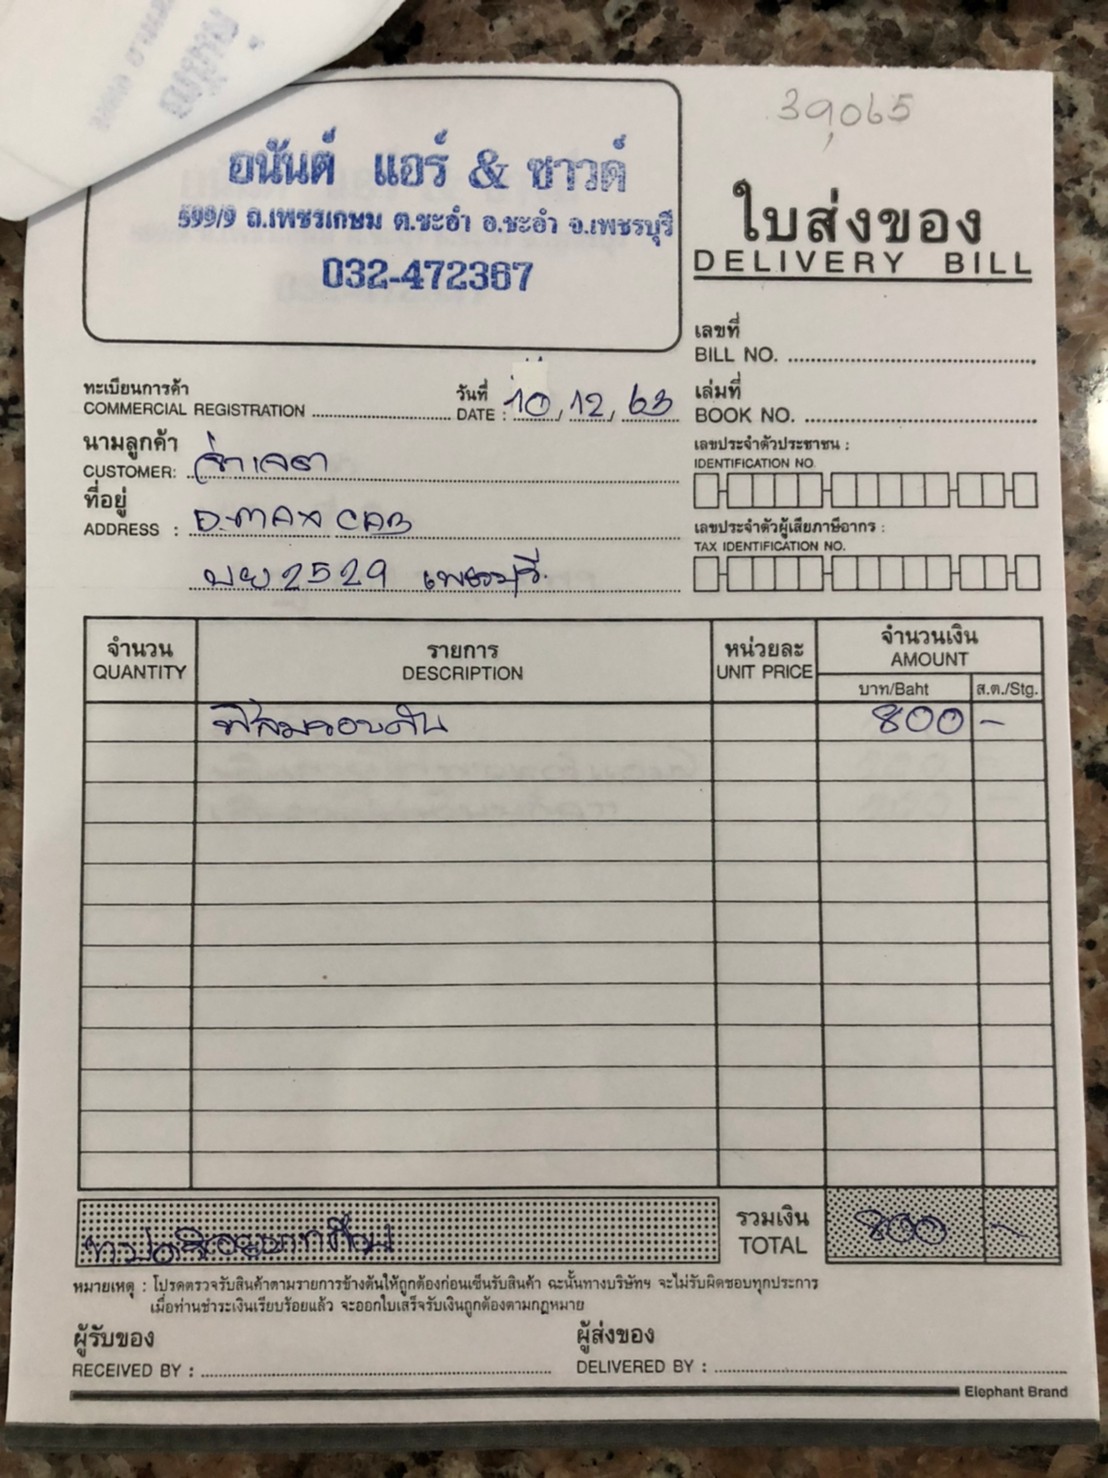 39,065
อนันต์ แอร์ & ซาวด์
599/9 ถ.เพชรเกษม ต.ชะอำ อ.ชะอำ จ.เพชรบุรี
032-472367
ใบส่งของ
DELIVERY BILL
เลขที่
BILL NO.
ทะเบียนการค้า
COMMERCIAL REGISTRATION
วันที่
DATE : 10, 12, 63
เล่มที่
BOOK NO.
นามลูกค้า
CUSTOMER:
เลขประจำตัวประชาชน :
IDENTIFICATION NO.
ที่อยู่
ADDRESS : D-MAX CAB
2529 เพชรบุรี
เลขประจำตัวผู้เสียภาษีอากร :
TAX IDENTIFICATION NO.
จำนวน รายการ หน่วยละ จำนวนเงิน
QUANTITY DESCRIPTION UNIT PRICE AMOUNT
บาท/Baht ส.ต./Stg.
ฟิล์มรอบคัน 800 -
รวมเงิน
TOTAL 800 -
หมายเหตุ : โปรดตรวจรับสินค้าตามรายการข้างต้นให้ถูกต้องก่อนเซ็นรับสินค้า ฉะนั้นทางบริษัทฯ จะไม่รับผิดชอบทุกประการ
เมื่อท่านชำระเงินเรียบร้อยแล้ว จะออกใบเสร็จรับเงินถูกต้องตามกฎหมาย
ผู้รับของ ผู้ส่งของ
RECEIVED BY : DELIVERED BY :
Elephant Brand